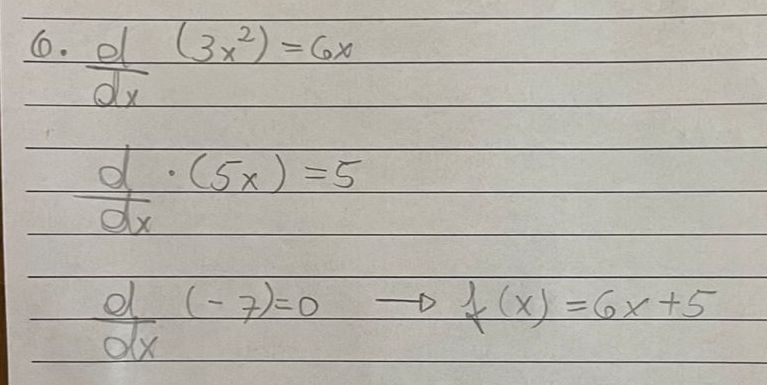 6. d/dx (3x²) = 6x
d/dx · (5x) = 5
d/dx (-7) = 0 → f(x) = 6x + 5